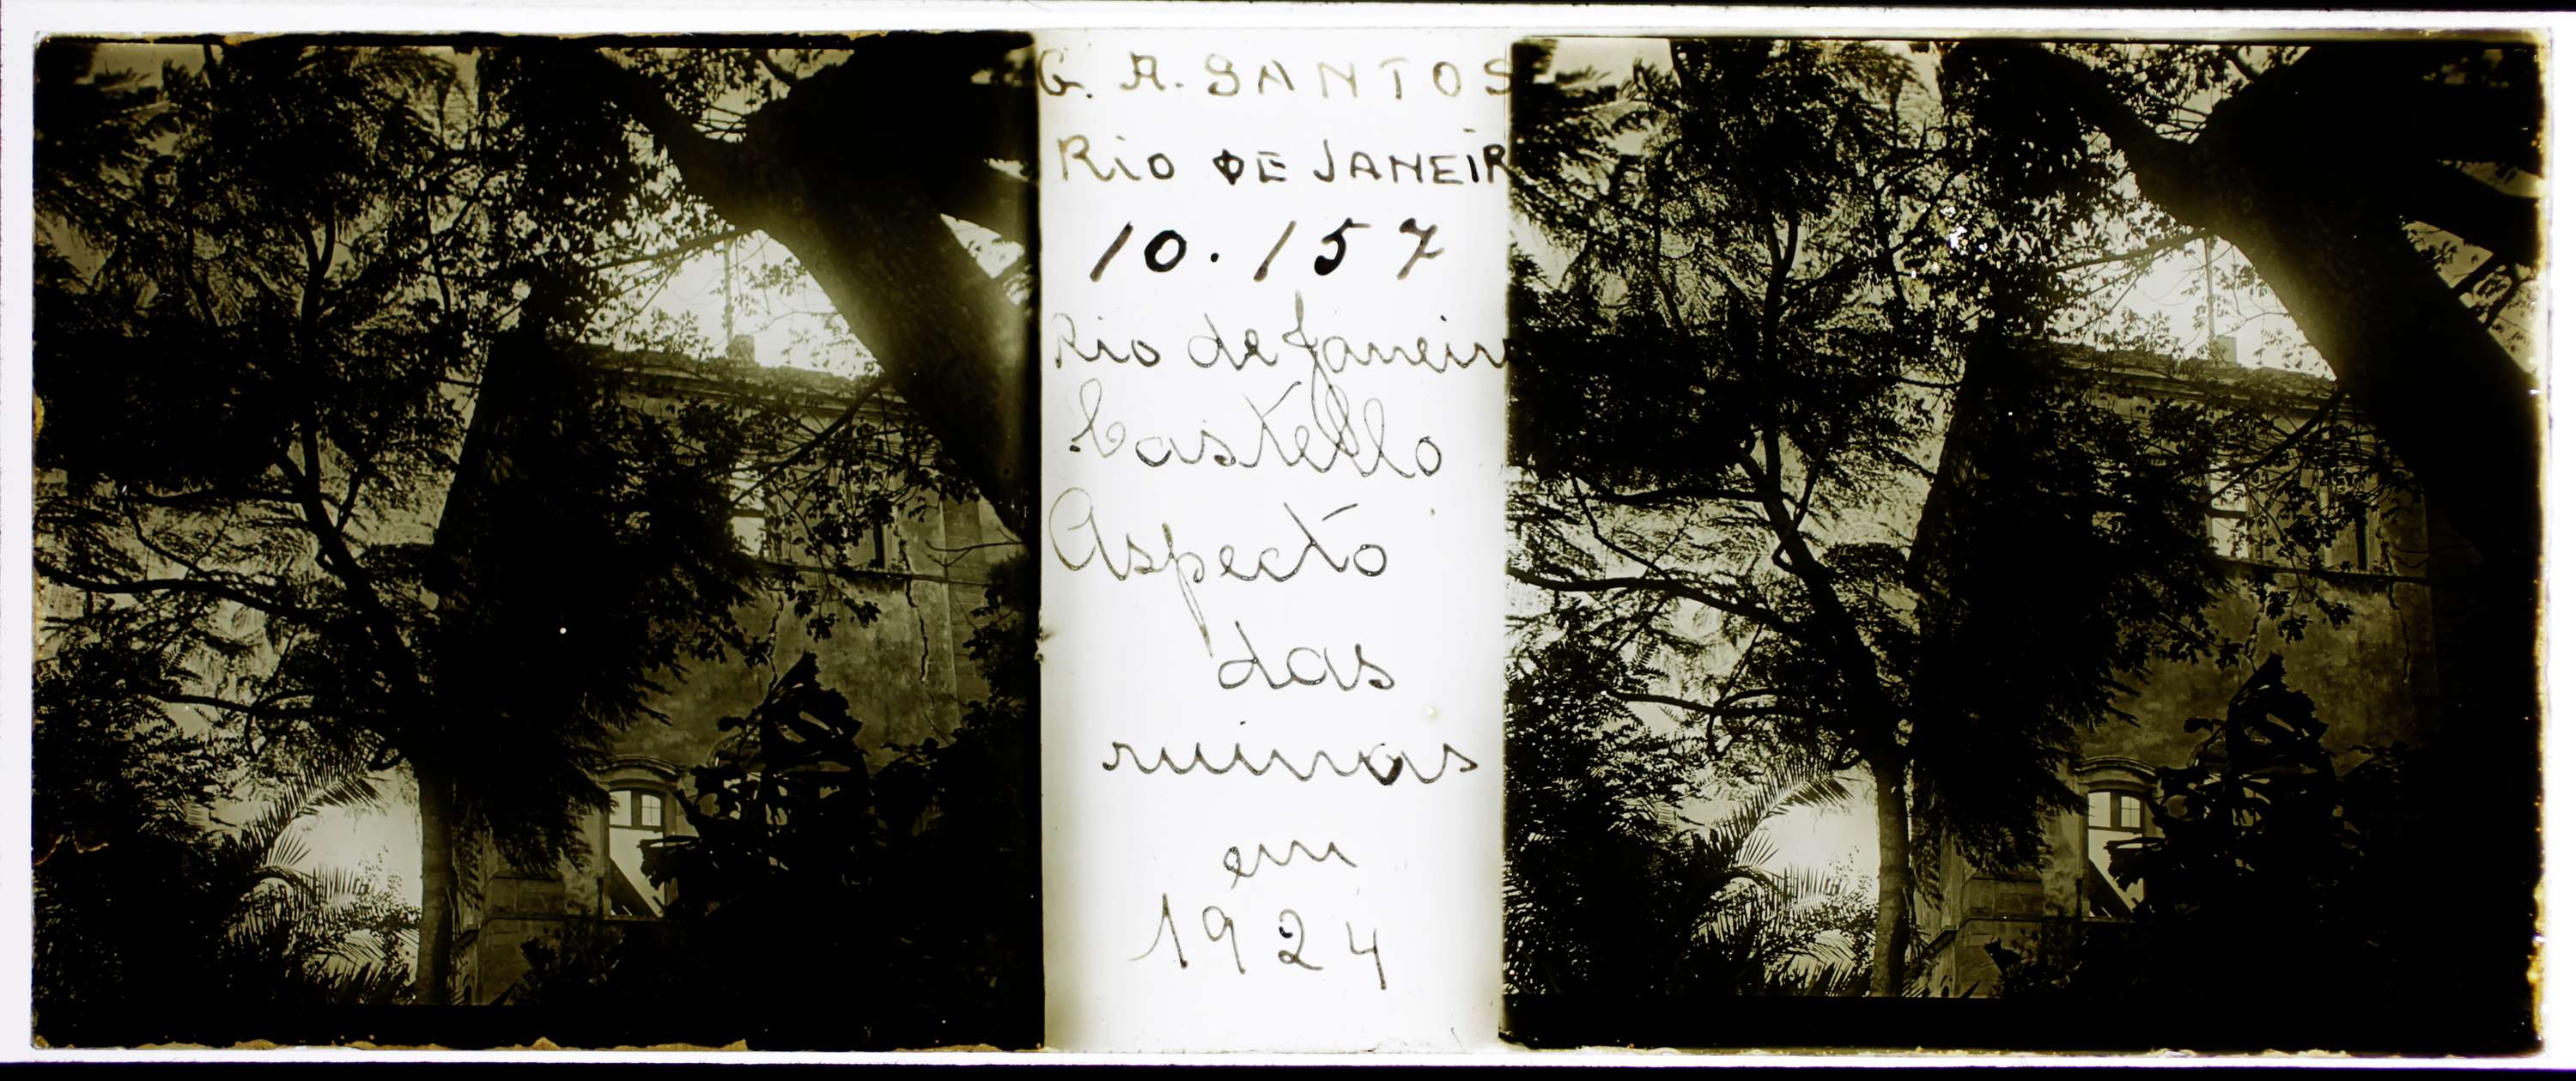 G. A. SANTOS
RIO DE JANEIR
10.157
Rio de Janeiro
Castello
Aspecto
das
ruinas
em
1924